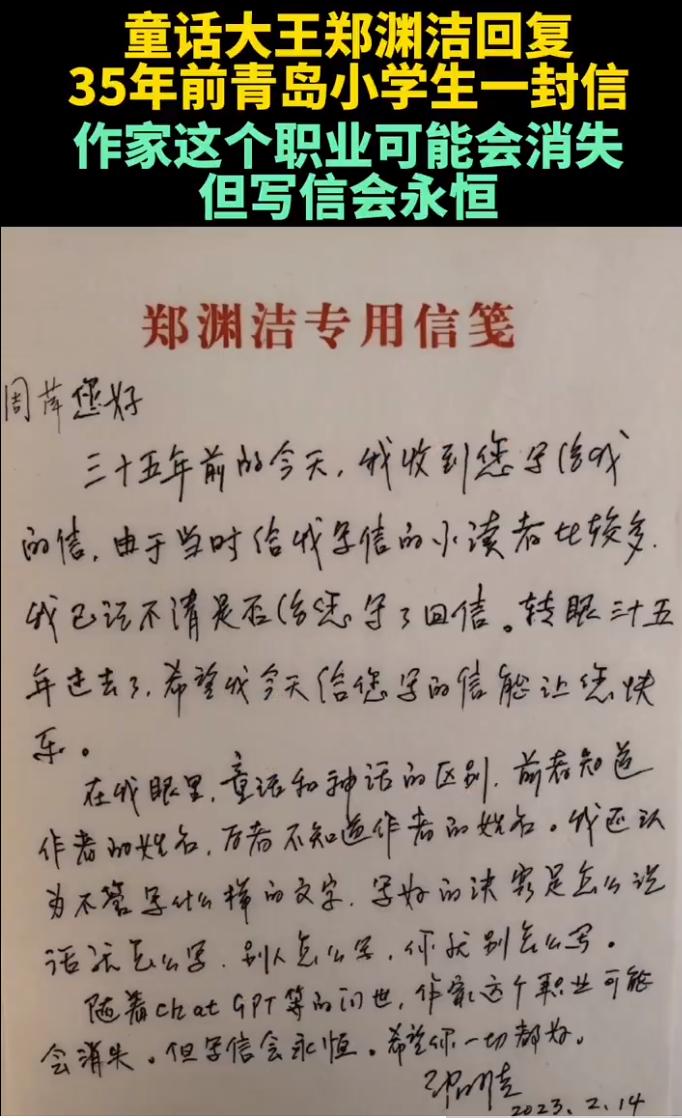 童话大王郑渊洁回复
35年前青岛小学生一封信
作家这个职业可能会消失
但写信会永恒
郑渊洁专用信笺
周萍您好
三十五年前的今天，我收到您写给我
的信，由于当时给我写信的小读者比较多，
我已记不清是否给您写了回信。转眼三十五
年过去了，希望我今天给您写的信能让您快
乐。
在我眼里，童话和神话的区别，前者知道
作者的姓名，后者不知道作者的姓名。我还认
为不管写什么样的文字，写好的诀窍是怎么说
话就怎么写，别人怎么写，你就别怎么写。
随着ChatGPT等的问世，作家这个职业可能
会消失。但写信会永恒。希望你一切都好。
郑渊洁
2023.2.14